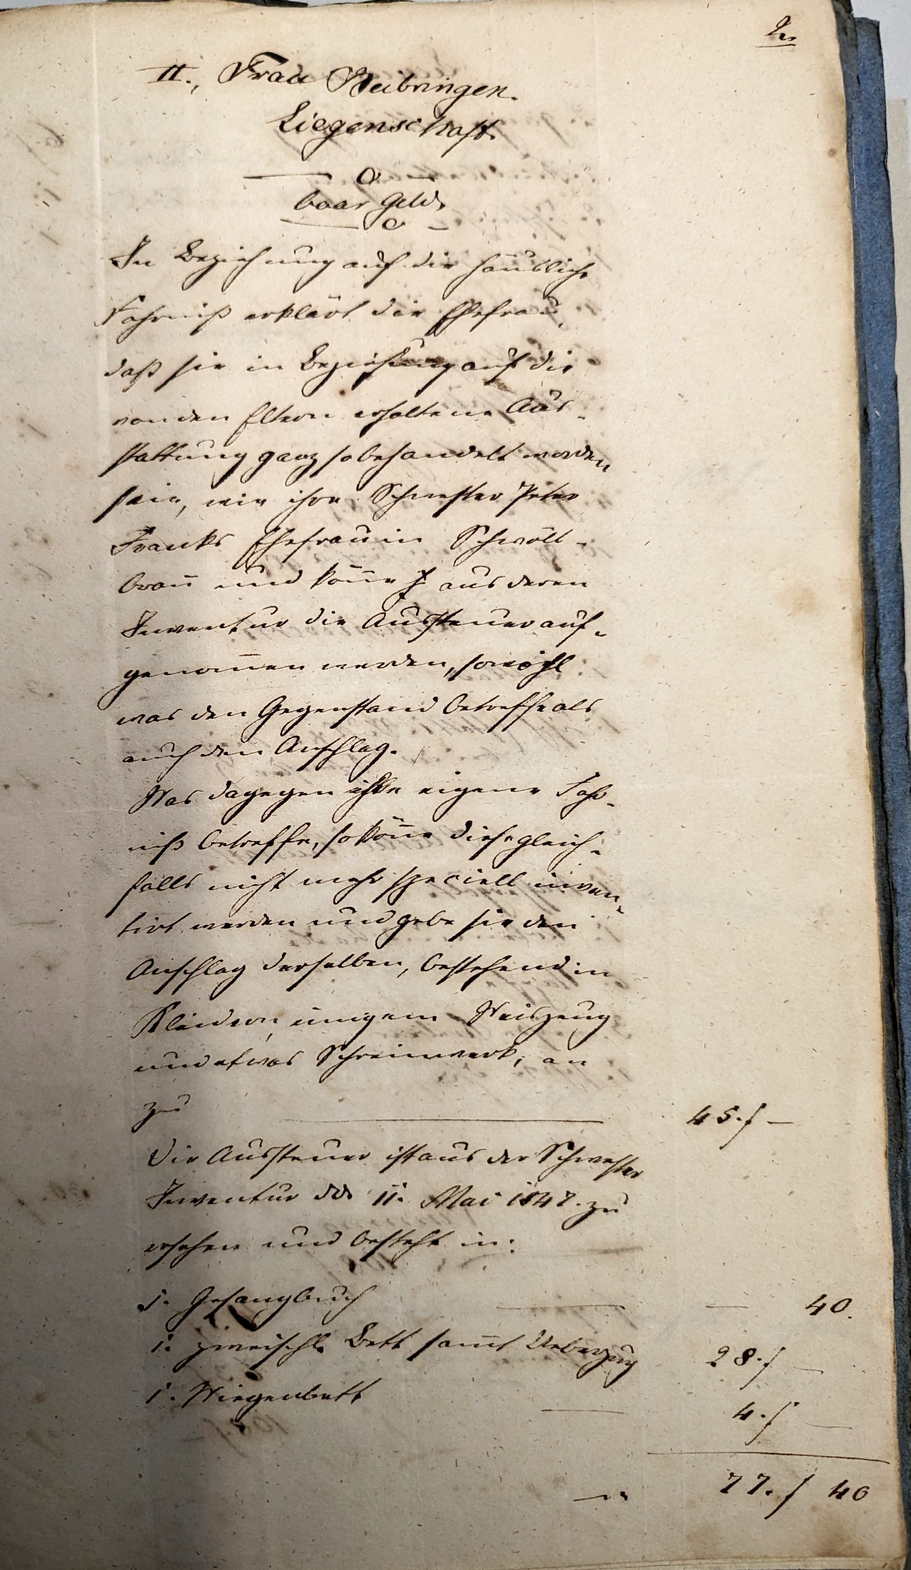 2.
II., Frau Beibringen.
Liegenschaft.
— 0 —
baar Geld.
— 0 —
In Beziehung auf die häusliche
Fahrniß erklärt die Ehefrau,
daß sie in Beziehung auf die
von den Eltern erhaltene Aus-
stattung ganz so behandelt worden
seie, wie ihre Schwester Peter
Franks Ehefrau in Schwöll-
bron̄ und kön̄e aus deren
Inventur die Aussteuer auf-
genom̄en werden, sowohl
was den Gegenstand betreffe als
auch den Anschlag.
Was dagegen ihre eigene Fahr-
niß betreffe, so kön̄e diese gleich-
falls nicht mehr speciell inven-
tirt werden und gebe sie den
Anschlag derselben, bestehend in
Kleidern einigem Weiszeug
und etwas Schreinwerk, an
zu — 45. f —
Die Aussteuer ist aus der Schwester
Inventur dd 11. Mai 1847. zu
ersehen und besteht in:
1. Gesangbuch — — 40.
1. zweischl. Bett sam̄t Ueberzug 28. f —
1. Wiegenbett — 4. f —
77. f 40